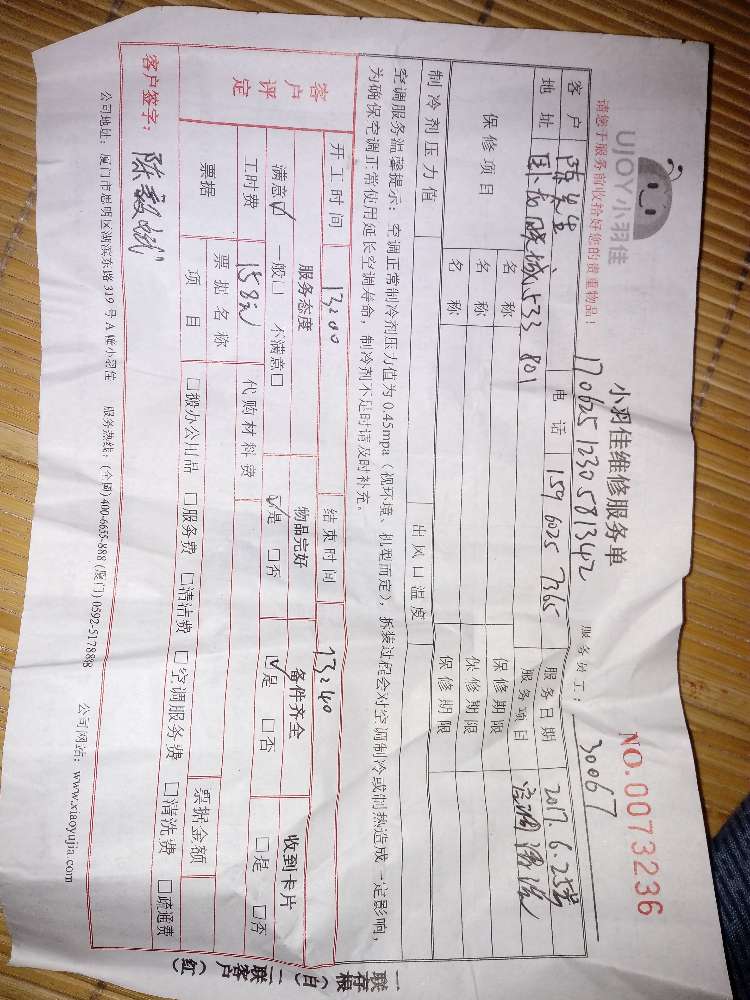 UJOY小羽佳
小羽佳维修服务单
NO.0073236
请您于服务前收拾好您的贵重物品!
1706251230581342
服务员工: 30067
客户 陈先生 电话 159 6025 7365 服务日期 2017.6.25号
地址 卧龙晓城533 801 服务项目 空调清洗
保修项目 名称 保修期限
名称 保修期限
名称 保修期限
制冷剂压力值 出风口温度
空调服务温馨提示:空调正常制冷剂压力值为0.45mpa(视环境、机型而定),拆装过程会对空调制冷或制热造成一定影响,
为确保空调正常使用延长空调寿命,制冷剂不足时请及时补充。
开工时间 13:00 结束时间 13:40
客户评定 服务态度 物品完好 备件齐全 收到卡片
满意☑ 一般□ 不满意□ ☑是 □否 ☑是 □否 □是 □否
工时费 158元 代购材料费
票据 票据名称 票据金额
项目 □搬办公用品 □服务费 □清洁费 □空调服务费 □清洗费 □疏通费
客户签字: 陈毅斌
公司地址:厦门市思明区湖滨东路319号A幢小羽佳 服务热线:(全国)400-6655-888 (厦门)0592-5178888 公司网站:www.xiaoyujia.com
一联存根(白) 二联客户(红)